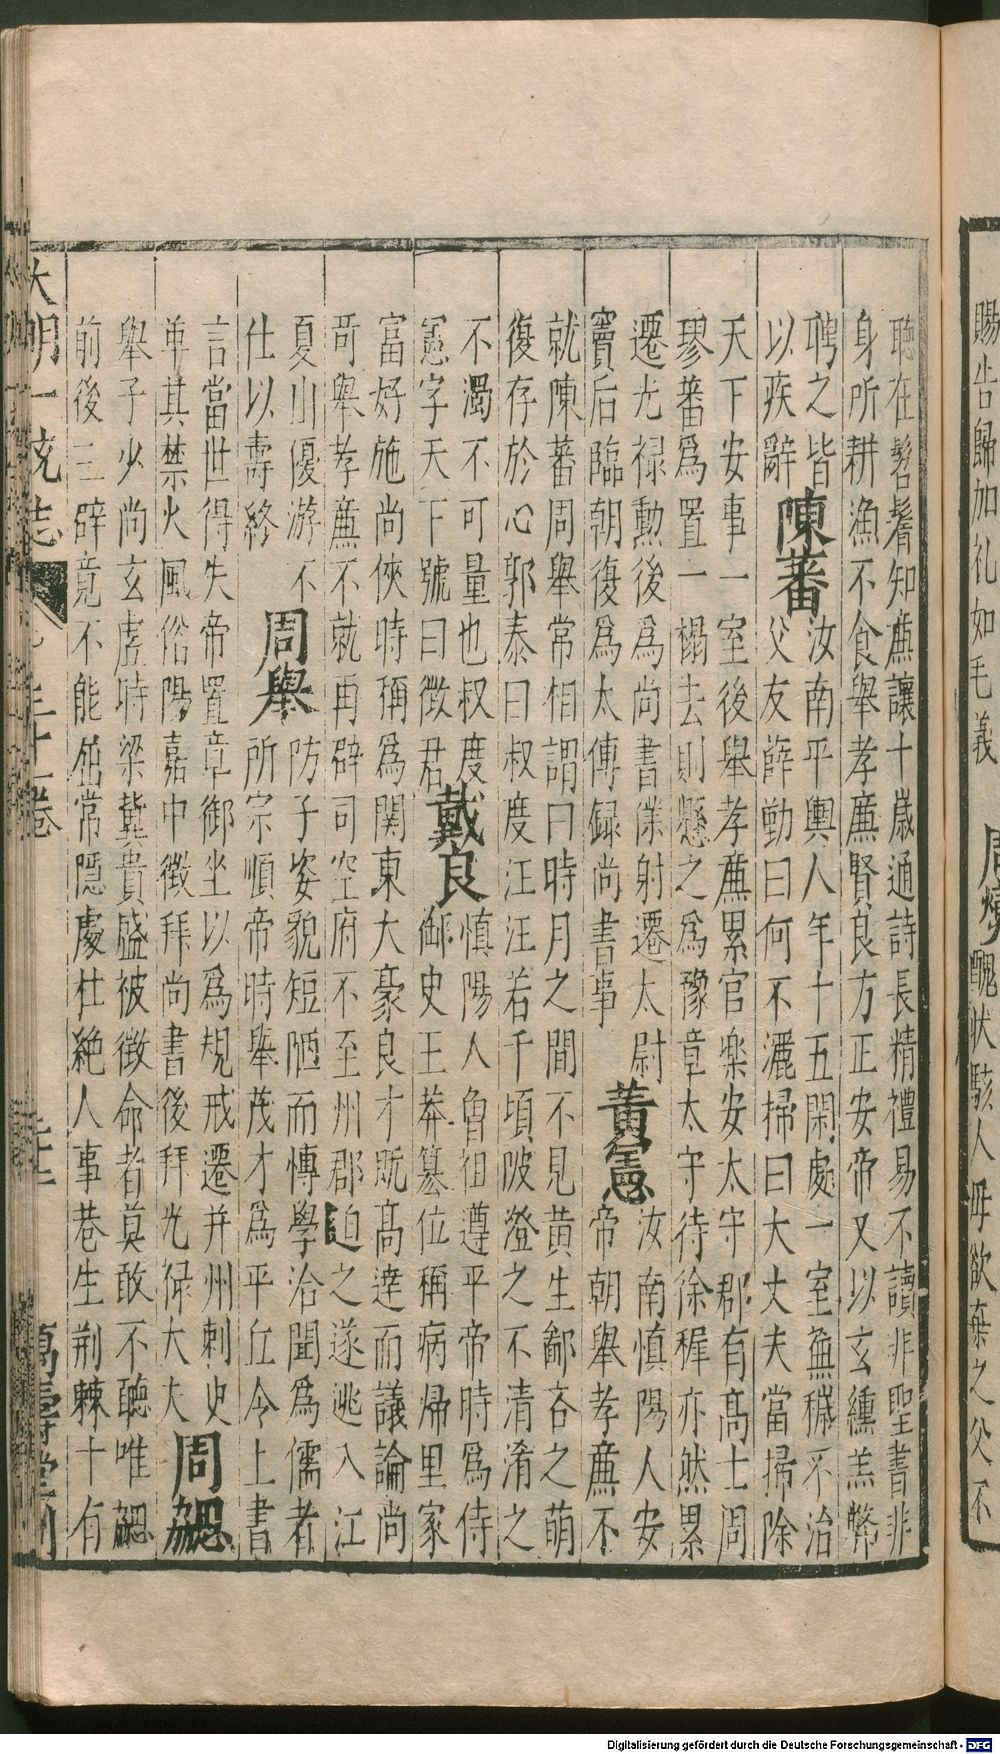 賜告歸加礼如毛義　周燮醜状駭人毋欲棄之父不
聴在髫鬌知廉讓十嵗通詩長精禮易不讀非聖書非
身所耕漁不食舉孝廉賢良方正安帝又以玄纁羔幣
聘之皆以疾辭
陳蕃
汝南平輿人年十五閑處一室蕪穢不治
父友薛勤曰何不灑掃曰大丈夫當掃除
天下安事一室後舉孝廉累官楽安太守郡有高士周
璆蕃爲置一榻去則懸之爲豫章太守待徐穉亦然累
遷光禄勲後爲尚書僕射遷太尉
竇后臨朝復爲太傅録尚書事
黄憲
汝南慎陽人安
帝朝舉孝廉不
就陳蕃周舉常相謂曰時月之間不見黄生鄙吝之萌
復存於心郭泰曰叔度汪汪若千頃陂澄之不清淆之
不濁不可量也叔度
憲字天下號曰徴君
戴良
慎陽人曾祖遵平帝時爲侍
御史王莽簒位稱病帰里家
富好施尚俠時稱爲関東大豪良才既高逹而議論尚
竒舉孝廉不就再辟司空府不至州郡迫之遂逃入江
夏山優游不
仕以壽終
周舉
防子姿貌短陋而博學洽聞爲儒者
所宗順帝時舉茂才爲平丘令上書
言當世得失帝置章御坐以爲規戒遷并州刺史
革其禁火風俗陽嘉中徴拜尚書後拜光禄大夫
周勰
舉子少尚玄虚時梁冀貴盛被徴命者莫敢不聽唯勰
前後三辟竟不能屈常隠處杜絶人事巷生荆棘十有
大明一統志　卷　萬壽堂刊
Digitalisierung gefördert durch die Deutsche Forschungsgemeinschaft - DFG